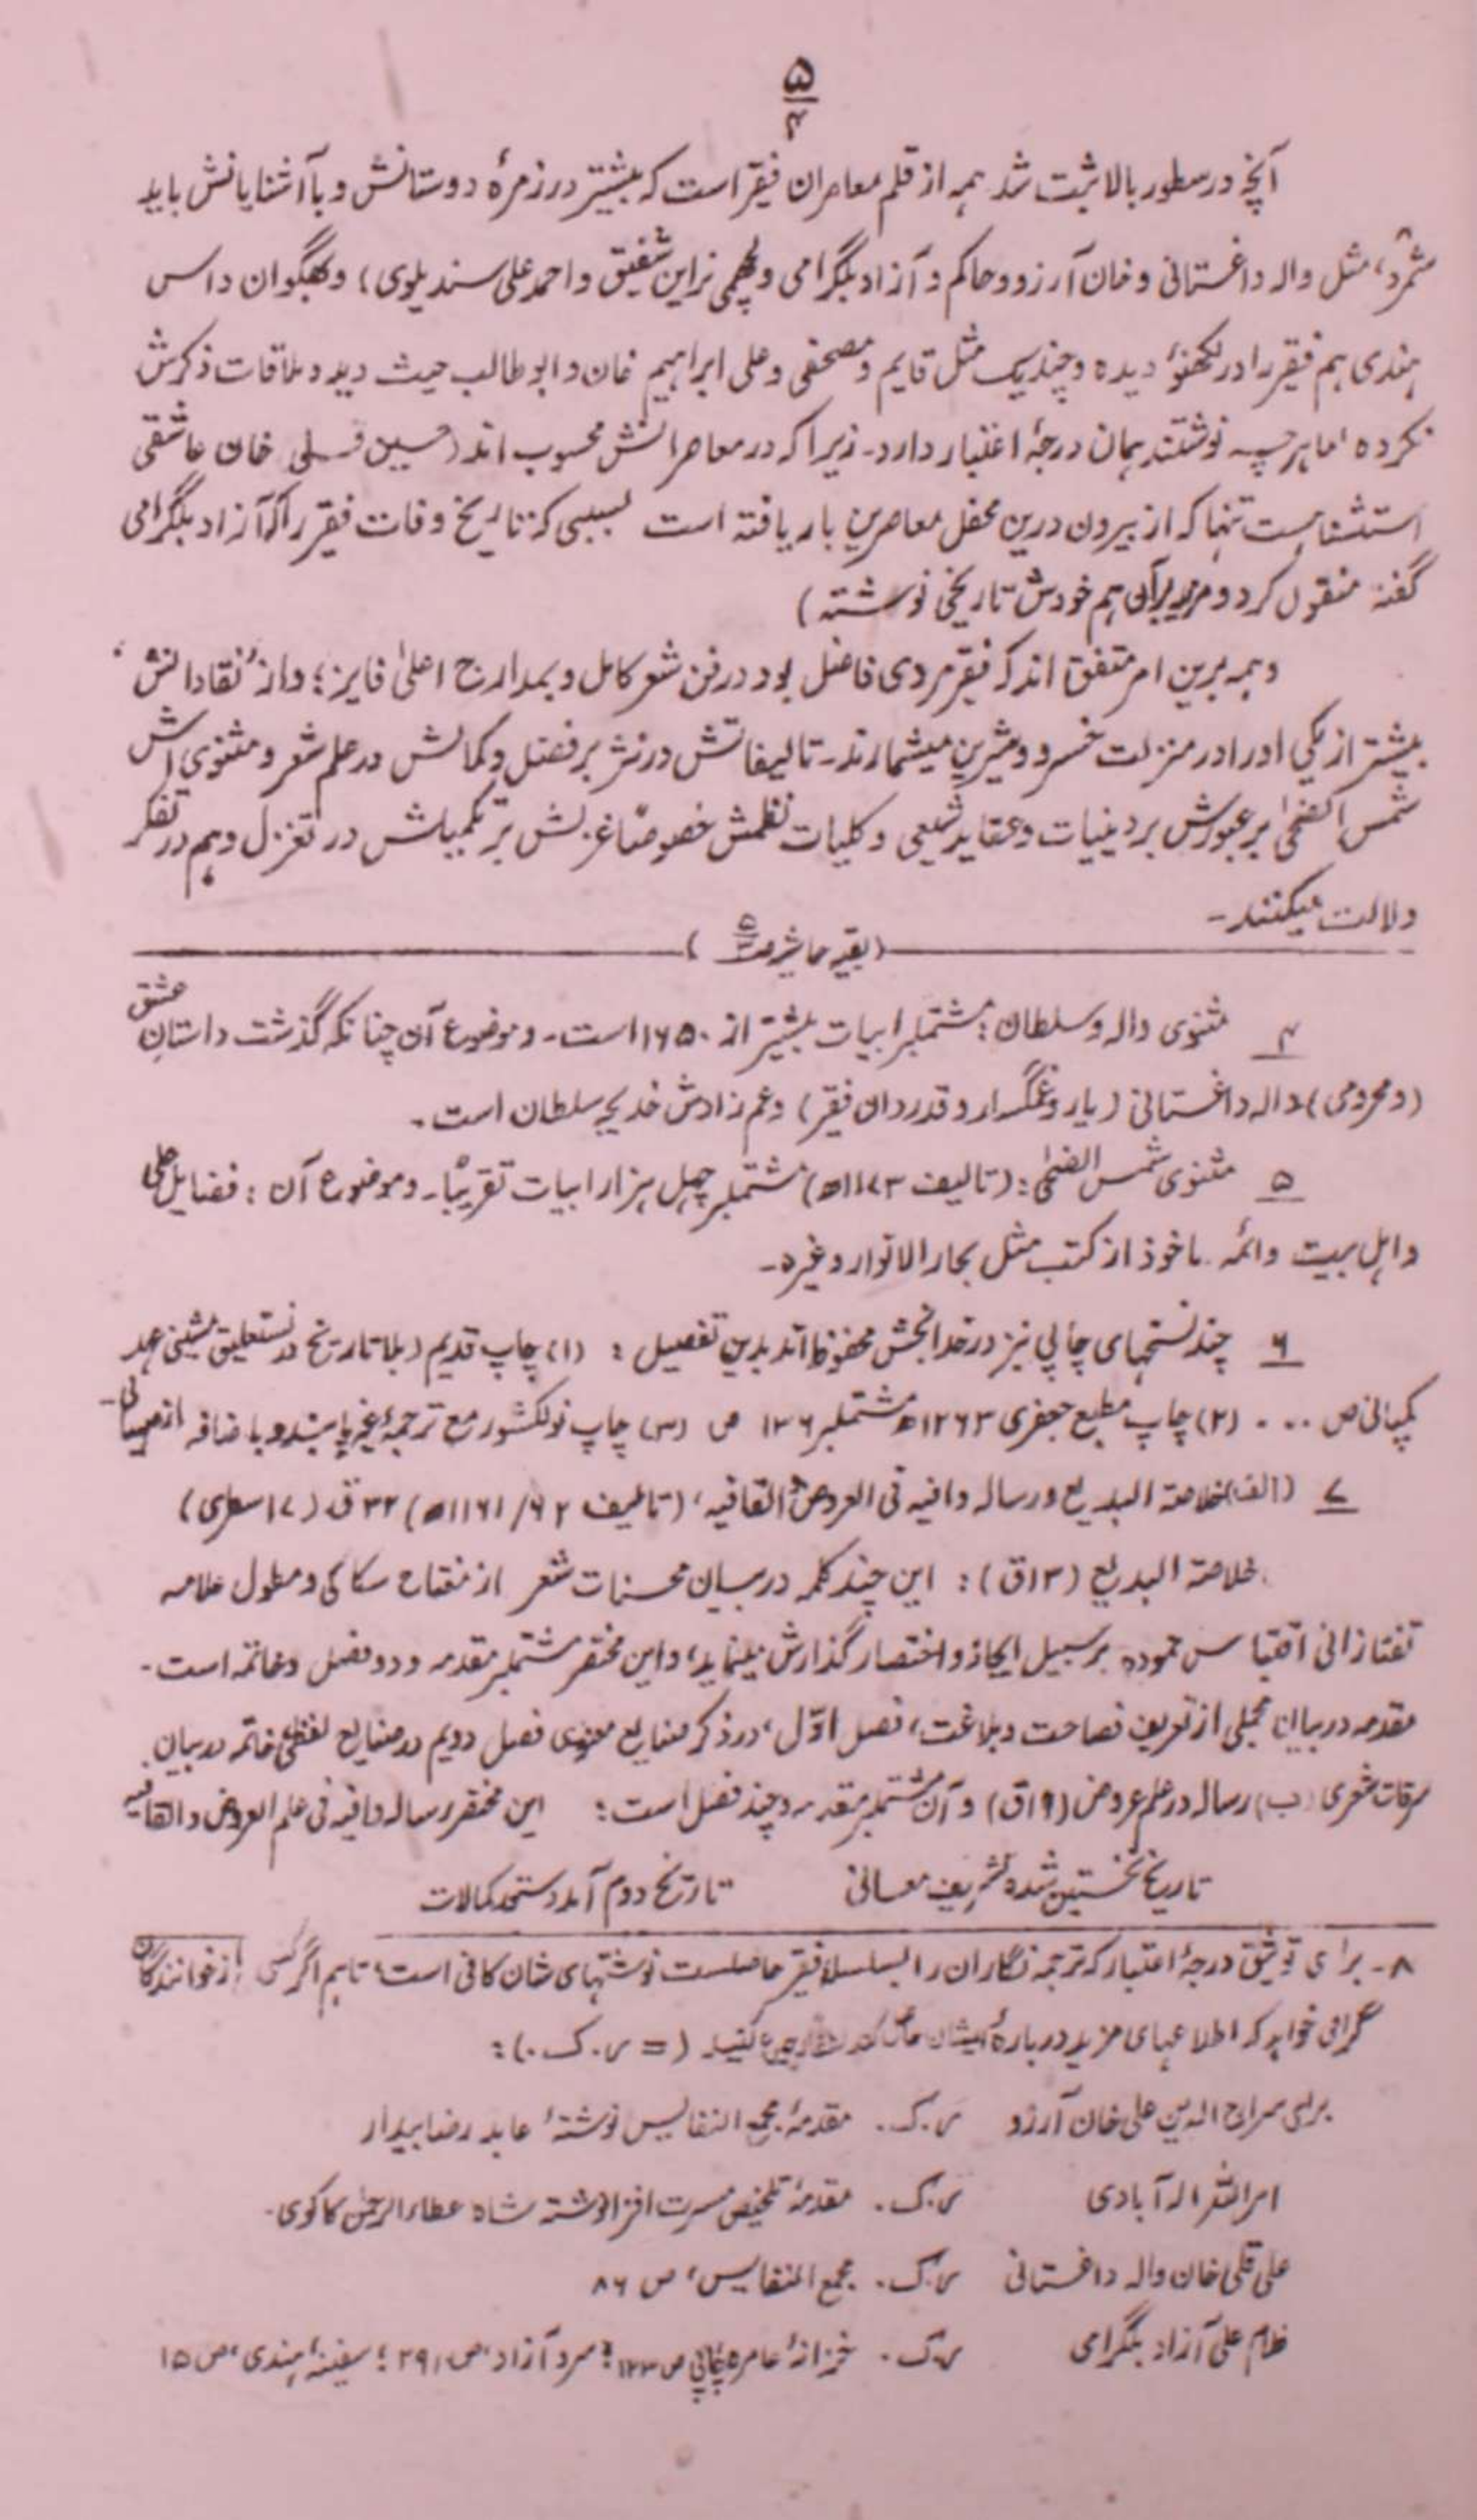 ۵
۴
آنچه در سطور بالا ثبت شد همه از قلم معاصران فقیر است که بیشتر در زمرۀ دوستانش و با آشنایانش باید
شمرد، مثل واله داغستانی و خان آرزو و حاکم و آزاد بلگرامی و لچهمی نراین شفیق و احمد علی سندیلوی، و بھگوان داس
هندی هم فقیر را در لکھنؤ دیده و چند یک مثل قایم و مصحفی و علی ابراهیم خان و ابو طالب حیث دید و ملاقات ذکرش
نکرده اما هرچه نوشتند همان درجۀ اعتبار دارد۔ زیرا که در معاصرانش محسوب اند (حسین قلی خان عاشقی
استثناست تنها که از بیرون درین محفل معاصرین بار یافته است بسببی که تاریخ وفات فقیر را که آزاد بلگرامی
گفته منقول کرد و مزید برآن هم خودش تاریخی نوشته)
و همه برین امر متفق اند که فقیر مردی فاضل بود در فن شعر کامل و بمدارج اعلیٰ فایز؛ و از نقادانش
بیشتر از یکی او را در منزلت خسرو و شیرین میشمارند۔ تالیفاتش در نثر بر فضل و کمالش در علم شعر و مثنوی اش
شمس الضحیٰ بر عبورش بر دینیات و عقاید شیعی و کلیات نظمش خصوصاً غزلش بر تکمیلش در تغزل و هم در تفکر
دلالت میکنند۔
(بقیه حاشیه ص ۵)
۴ مثنوی واله و سلطان: مشتملبر ابیات بیشتر از ۱۶۵۰ است۔ و موضوع آن چنانکه گذشت داستانِ عشق
(و محرومی) واله داغستانی (یار و غمگسار و قدردان فقیر) و عم زادش خدیجه سلطان است۔
۵ مثنوی شمس الضحیٰ: (تالیف ۱۱۷۳ھ) مشتملبر چهل هزار ابیات تقریباً۔ و موضوع آن: فضایل علی
و اہل بیت و ائمہ۔ ماخوذ از کتب مثل بحار الانوار و غیره۔
۶ چند نسخهای چاپی نیز در خدابخش محفوظ اند بدین تفصیل: (۱) چاپ قدیم (بلا تاریخ در نستعلیق مشینی عہد
کمپانی ص ... (۲) چاپ مطبع جعفری ۱۲۶۳ھ مشتملبر ۱۳۶ ص (۳) چاپ نولکشور مع ترجمۀ غیر پابند و با ضافه از
۷ (الف) خلاصۃ البدیع و رسالہ وافیہ فی العروض و القافیہ، (تالیف ۶۲/۱۱۶۱ھ) ۳۲ ق (۱۷ سطری)
خلاصۃ البدیع (۱۳ق): این چند کلمہ در بیان محسنات شعر از مفتاح سکاکی و مطول علامہ
تفتازانی اقتباس نموده بر سبیل ایجاز و اختصار گذارش مینماید، و این مختصر مشتملبر مقدمہ و دو فصل و خاتمہ است۔
مقدمہ در بیان مجملی از تعریف فصاحت و بلاغت، فصل اوّل، در ذکر صنایع معنوی فصل دویم در صنایع لفظی خاتمہ در بیان
سرقات شعری (ب) رسالہ در علم عروض (۱۹ق) و آن مشتملبر مقدمہ و چند فصل است: این مختصر رسالہ وافیہ فی علم العروض و القافیہ
تاریخ نخستین شده تشریف معانی تاریخ دوم آمد دستحد کمالات
۸۔ برای توثیق درجۀ اعتبار که ترجمہ نگاران را بسلسلۀ فقیر حاصلست نوشتهای شان کافی است، تاہم اگر کسی از خوانندگان
گرامی خواهد که اطلاعهای مزید دربارۀ ایشان حاصل کند رجوع کنید (= ر. ک.):
برای سراج الدین علی خان آرزو ر. ک. مقدمۀ مجمع النفایس نوشتۀ عابد رضا بیدار
امرالله اله آبادی ر. ک. مقدمۀ تلخیص مسرت افزا نوشتۀ شاه عطاء الرحمٰن کاکوی۔
علی قلی خان واله داغستانی ر. ک. مجمع النفایس، ص ۸۶
غلام علی آزاد بلگرامی ر. ک. خزانۀ عامرہ چاپی ص ۱۲۳؛ سرو آزاد، ص ۲۹۱؛ سفینۂ ہندی، ص ۱۵